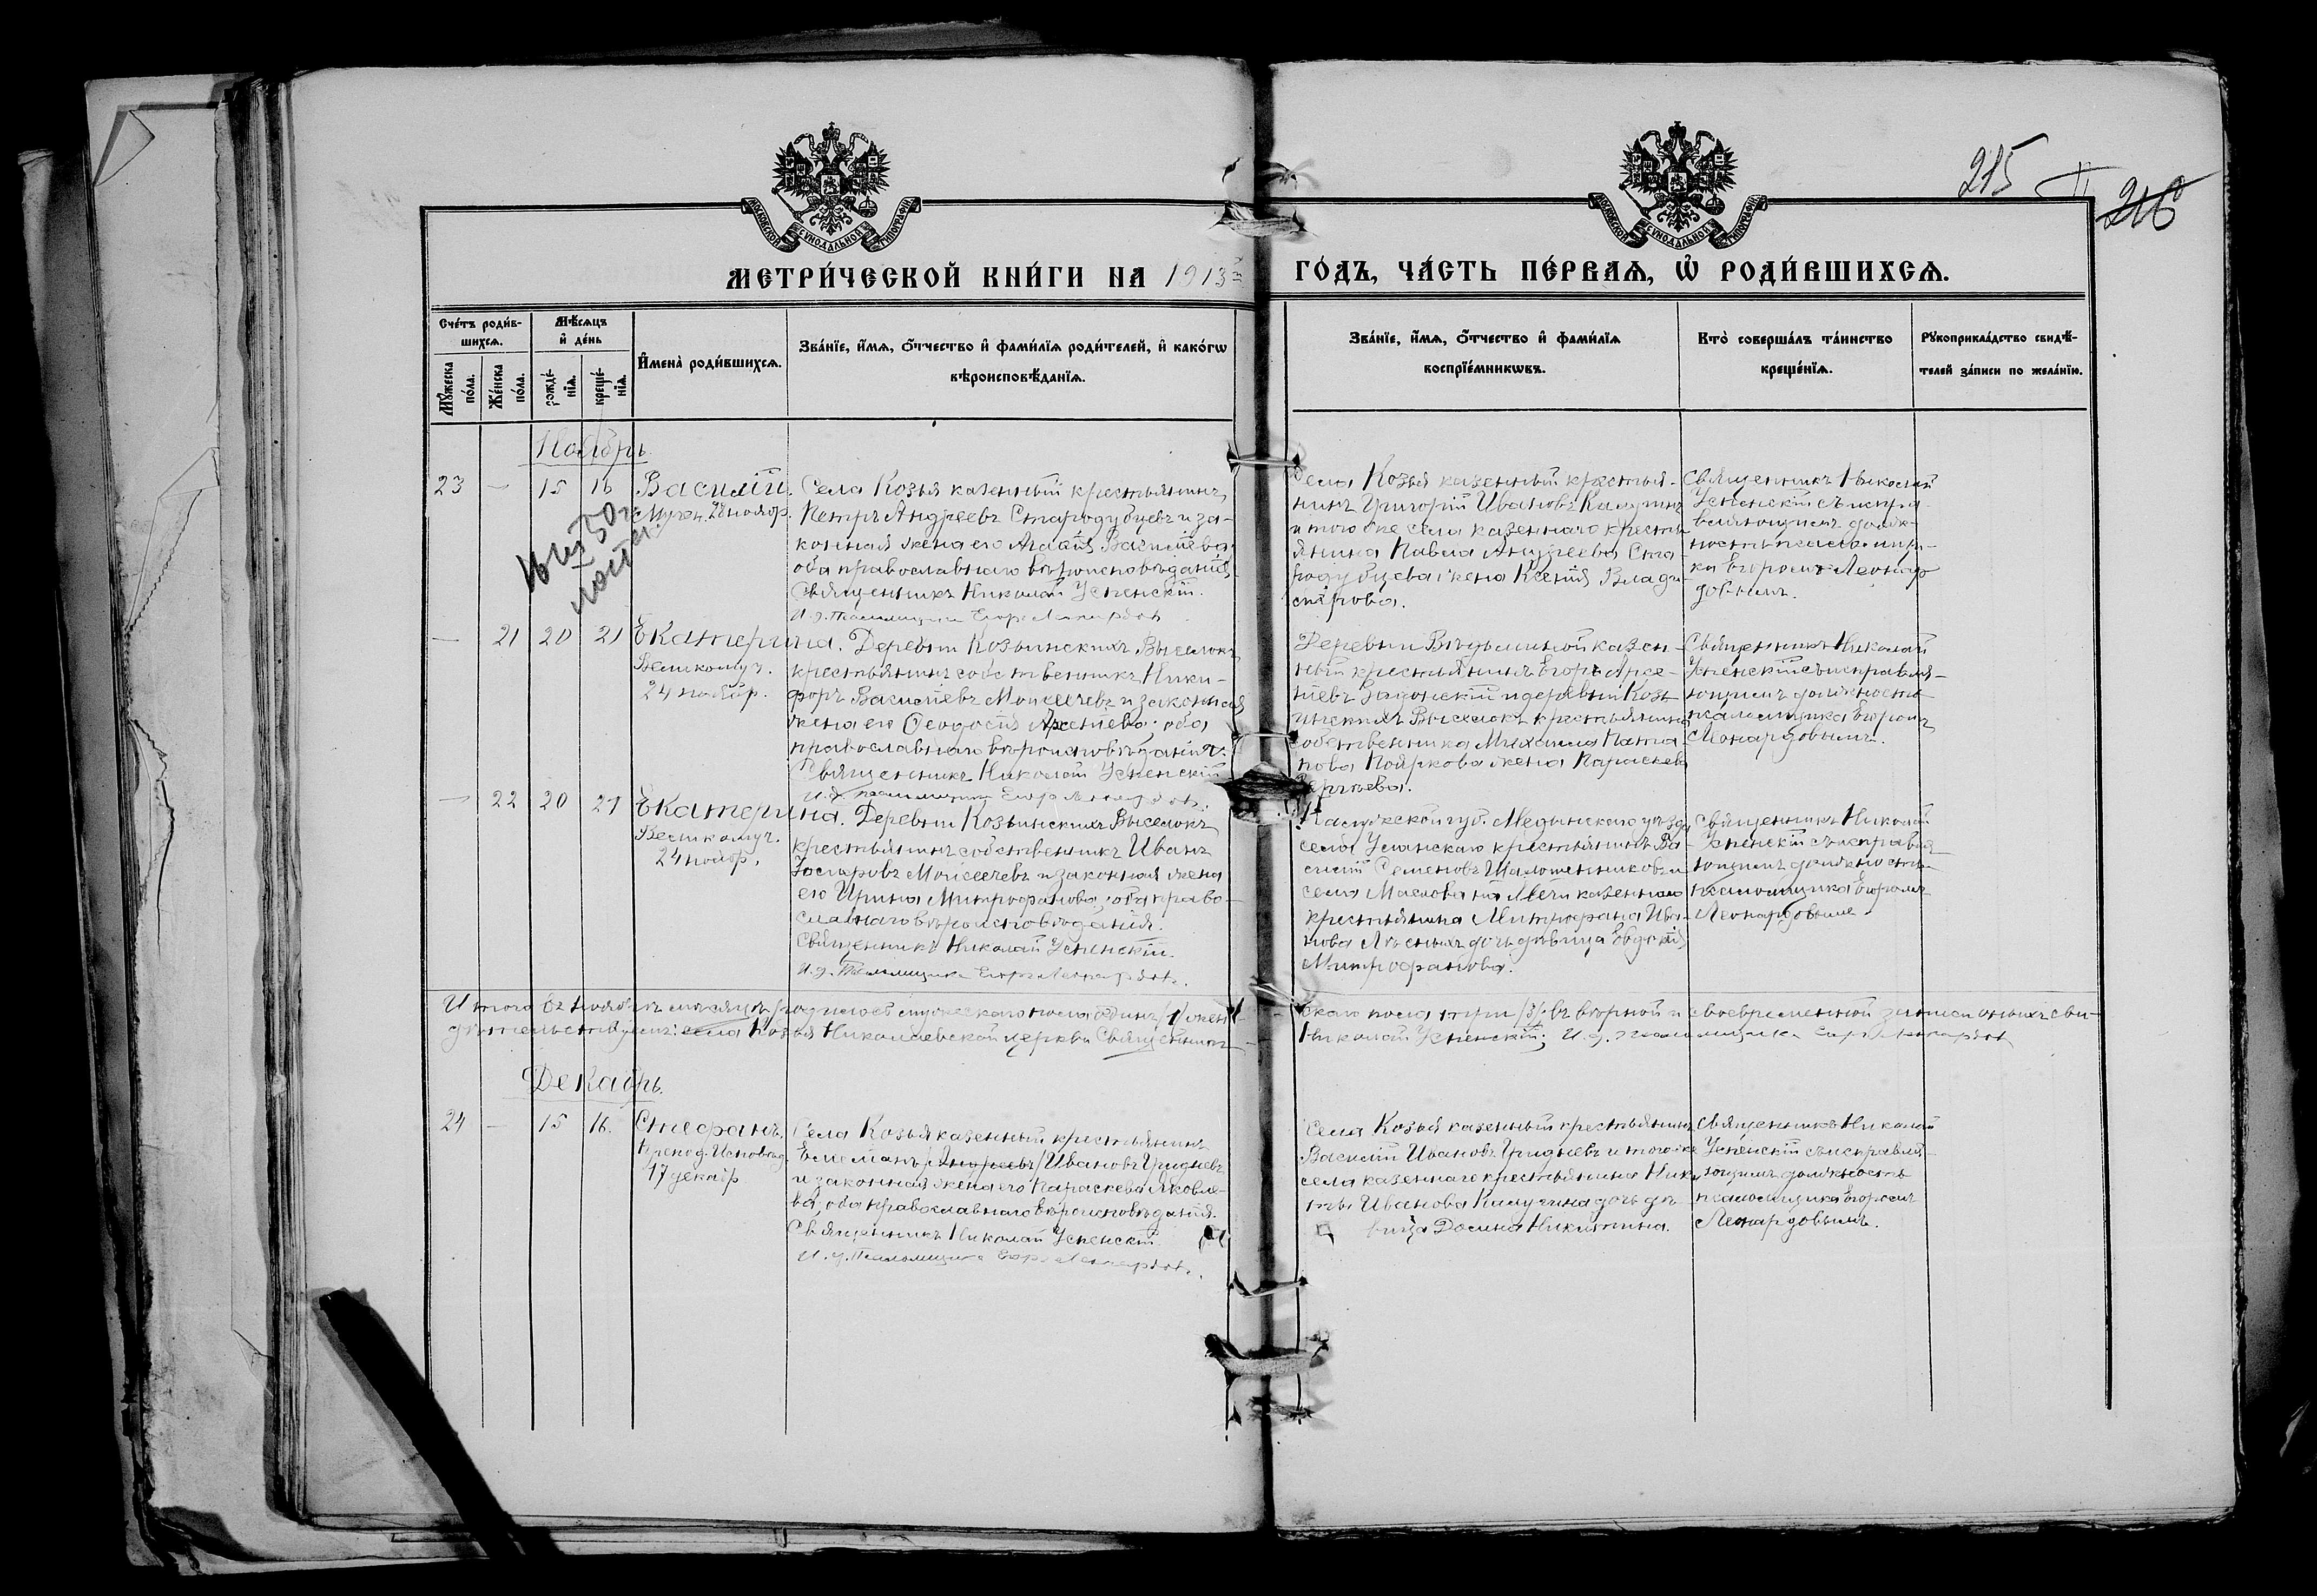 215
216
МОСКОВСКОЙ СѴНОДАЛЬНОЙ ТИПОГРАФІИ
МОСКОВСКОЙ СѴНОДАЛЬНОЙ ТИПОГРАФІИ
МЕТРИ́ЧЕСКОЙ КНИ́ГИ НА 1913й ГО́ДЪ, ЧА́СТЬ ПЕ́РВАѦ, Ѿ РОДИ́ВШИХСѦ.
Сче́тъ роди́в-
шихсѧ.
Мꙋ́жеска по́ла.
Же́нска по́ла.
Мѣ́сѧцъ и де́нь
рожде́-нїѧ.
креще́-нїѧ.
И҆мена̀ роди́вшихсѧ.
Зва́нїе, и҆́мѧ, ѻ҆́тчество и҆ фами́лїѧ роди́телей, и҆ како́гѡ
вѣроисповѣ́данїѧ.
Зва́нїе, и҆́мѧ, ѻ҆́тчество и҆ фами́лїѧ
воспрїе́мникѡвъ.
Кто̀ соверша́лъ та́инство
креще́нїѧ.
Рꙋкоприкла́дство свидѣ́-
телей за́писи по жела́нїю.
Ноябрь.
23 — 15 16
Василій.
Мучен. 28 ноябр.
Села Козья казенный крестьянинъ
Петръ Андреевъ Стародубцевъ и за-
конная жена его Агаѳія Васильева;
оба православнаго вѣроисповѣданія.
Священникъ Николай Успенскій.
И. д. Псаломщика Егоръ Леонардовъ.
Села Козья казенный крестья-
нинъ Григорій Ивановъ Калугинъ
и того же села казеннаго кресть-
янина Павла Андреева Ста-
родубцева жена Ксенія Влади-
мірова.
Священникъ Николай
Успенскій съ испра-
вляющимъ долж-
ность псаломщи-
ка Егоромъ Леонар-
довымъ.
— 21 20 21
Екатерина.
Великомуч.
24 ноябр.
Деревни Козьинскихъ Выселокъ
крестьянинъ собственникъ Ники-
форъ Васильевъ Моисеичевъ и законная
жена его Ѳеодосія Арсеньева; оба
православнаго вѣроисповѣданія.
Священникъ Николай Успенскій.
И. д. псаломщика Егоръ Леонардовъ.
ный крестьянинъ Егоръ Арсе-
ньевъ Задонскій и деревни Козь-
инскихъ Выселокъ крестьянина
собственника Михаила Пота-
пова Пояркова жена Параскева
Сергѣева.
Священникъ Николай
Успенскій съ исправля-
ющимъ должность
псаломщика Егоромъ
Леонардовымъ.
— 22 20 21
Екатерина.
Великомуч.
24 ноябр.
Деревни Козьинскихъ Выселокъ
крестьянинъ собственникъ Иванъ
Захаровъ Моисеичевъ и законная жена
его Ирина Митрофанова; оба право-
славнаго вѣроисповѣданія.
Священникъ Николай Успенскій.
И. д. Псаломщика Егоръ Леонардовъ.
Калужской губ. Медынскаго уѣзда
крестьянинъ Ва-
силій Семеновъ
казеннаго
крестьянина Митрофана Ива-
нова Лѣсныхъ дочь дѣвица Евдокія
Митрофанова.
Священникъ Николай
Успенскій съ исправля-
ющимъ должность
псаломщика Егоромъ
Леонардовымъ.
Итого въ Ноябрѣ мѣсяцѣ родилось мужескаго пола одинъ /1/ жен-
скаго пола три /3/; въ вѣрной и своевременной записи оныхъ сви-
дѣтельствуемъ: села Козья Николаевской церкви Священникъ
Николай Успенскій; И. д. псаломщика Егоръ Леонардовъ
Декабрь.
24 — 15 16.
Стефанъ.
Препод. Исповѣд.
17 декабр.
Села Козья казенный крестьянинъ
/Андреевъ/ Ивановъ Гридневъ
и законная жена его Параскева Яковле-
ва; оба православнаго вѣроисповѣданія.
Священникъ Николай Успенскій.
И. д. Псаломщика Егоръ Леонардовъ.
Села Козья казенный крестьянинъ
Василій Ивановъ Гридневъ и того же
села казеннаго крестьянина Ники-
ты Иванова Калугина дочь дѣ-
вица Домна Никитина.
Священникъ Николай
Успенскій съ исправля-
ющимъ должность
псаломщика Егоромъ
Леонардовымъ.